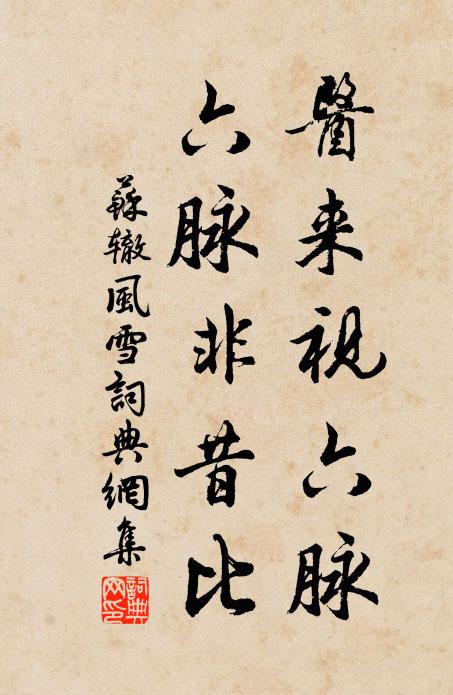 醫来視六脉
六脉非昔比
蘇辙風雪詞典網集
詞典网印